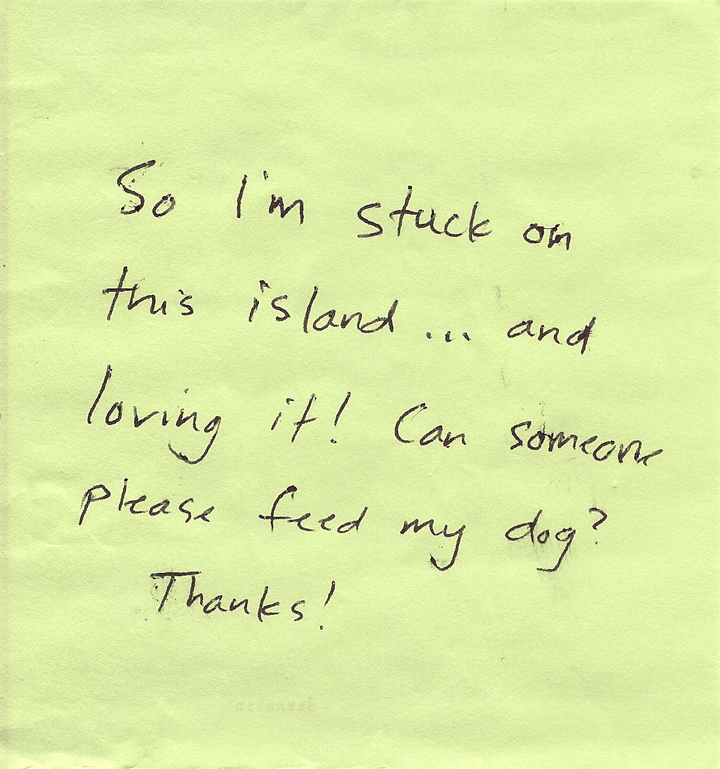 So I'm stuck on
this island... and
loving it! Can someone
please feed my dog?
Thanks!